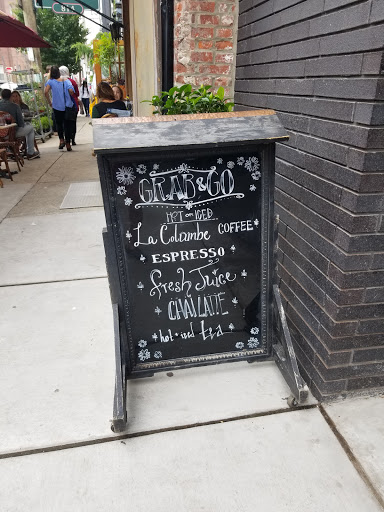 GRAB & GO
HOT or ICED
La Colombe COFFEE
ESPRESSO
fresh Juice
CHAI LATTE
hot · iced tea